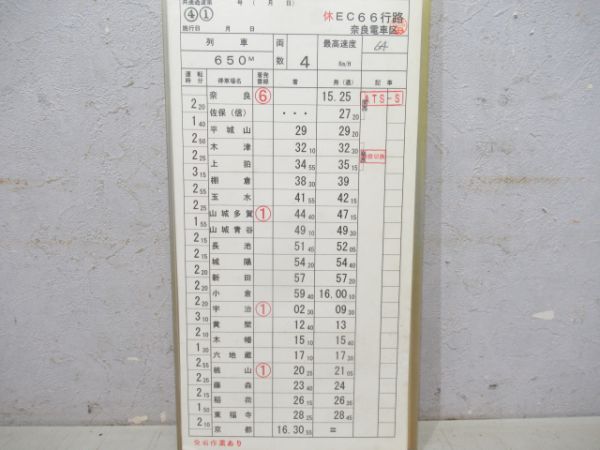 ④① 号 ( 月 日)
施行日 月 日
休EC66行路
奈良電車区
列車 両数 最高速度 64
650M 4 Km/H
運転時分 停車場名 着発番線 着 発(通) 記事
奈良 ⑥ 15.25 ATS-S
2 20
佐保(信) ・・・ 27 20
1 40
平城山 29 29 20
2 50
木津 32 10 32 30
2 25
上狛 34 55 35 15
3 15
棚倉 38 30 39
2 55
玉水 41 55 42 15
2 25
山城多賀 ① 44 40 47 15
山城青谷 49 10 49 30
2 15
長池 51 45 52 05
2 15
城陽 54 20 54 40
2 20
新田 57 57 20
2 20
小倉 59 40 16.00 10
2 20
宇治 ① 02 30 09 30
3 10
黄檗 12 40 13
2 10
木幡 15 10 15 40
1 30
六地蔵 17 10 17 30
桃山 ① 20 25 21 05
2 35
藤森 23 40 24
2 15
稲荷 26 15 26 35
1 50
東福寺 28 25 28 45
2 10
京都 16.30 55 =